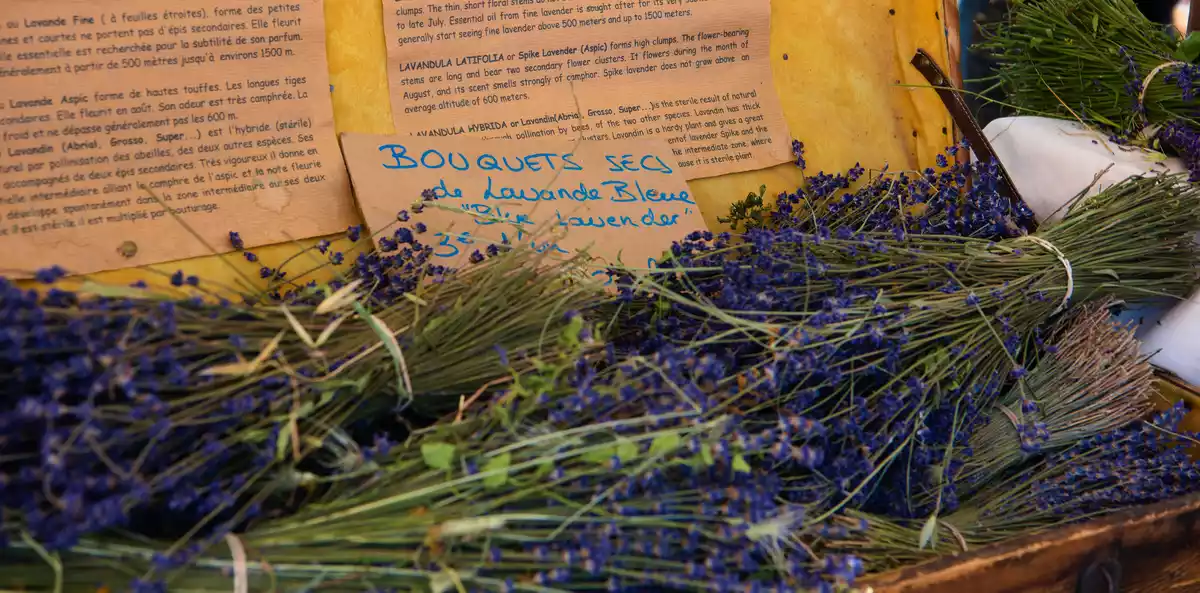 ou Lavande Fine ( à feuilles étroites), forme des petites
nes et courtes ne portent pas d'épis secondaires. Elle fleurit
le essentielle est recherchée pour la subtilité de son parfum.
énéralement à partir de 500 mètres jusqu'à environs 1500 m.
Lavande Aspic forme de hautes touffes. Les longues tiges
condaires. Elle fleurit en août. Son odeur est très camphrée. La
froid et ne dépasse généralement pas les 600 m.
Lavandin (Abrial, Grosso, Super...) est l'hybride (stérile)
turel par pollinisation des abeilles, des deux autres espèces. Ses
accompagnés de deux épis secondaires. Très vigoureux il donne en
thèse intermédiaire alliant le camphre de l'aspic et la note fleurie
développe spontanément dans la zone intermédiaire où ses deux
e il est stérile, il est multiplié par bouturage.
clumps. The thin, short floral stems
to late July. Essential oil from fine lavender is sought after for its very
generally start seeing fine lavender above 500 meters and up to 1500 meters.
LAVANDULA LATIFOLIA or Spike Lavender (Aspic) forms high clumps. The flower-bearing
stems are long and bear two secondary flower clusters. It flowers during the month of
August, and its scent smells strongly of camphor. Spike lavender does not grow above an
average altitude of 600 meters.
LAVANDULA HYBRIDA or Lavandin(Abrial, Grosso, Super...)is the sterile result of natural
through pollination by bees, of the two other species. Lavandin has thick
clusters. Lavandin is a hardy plant and gives a great
of lavender Spike and the
he intermediate zone, where
ause it is sterile plant.
BOUQUETS SECS
de Lavande Bleue
"Blue Lavender"
3€